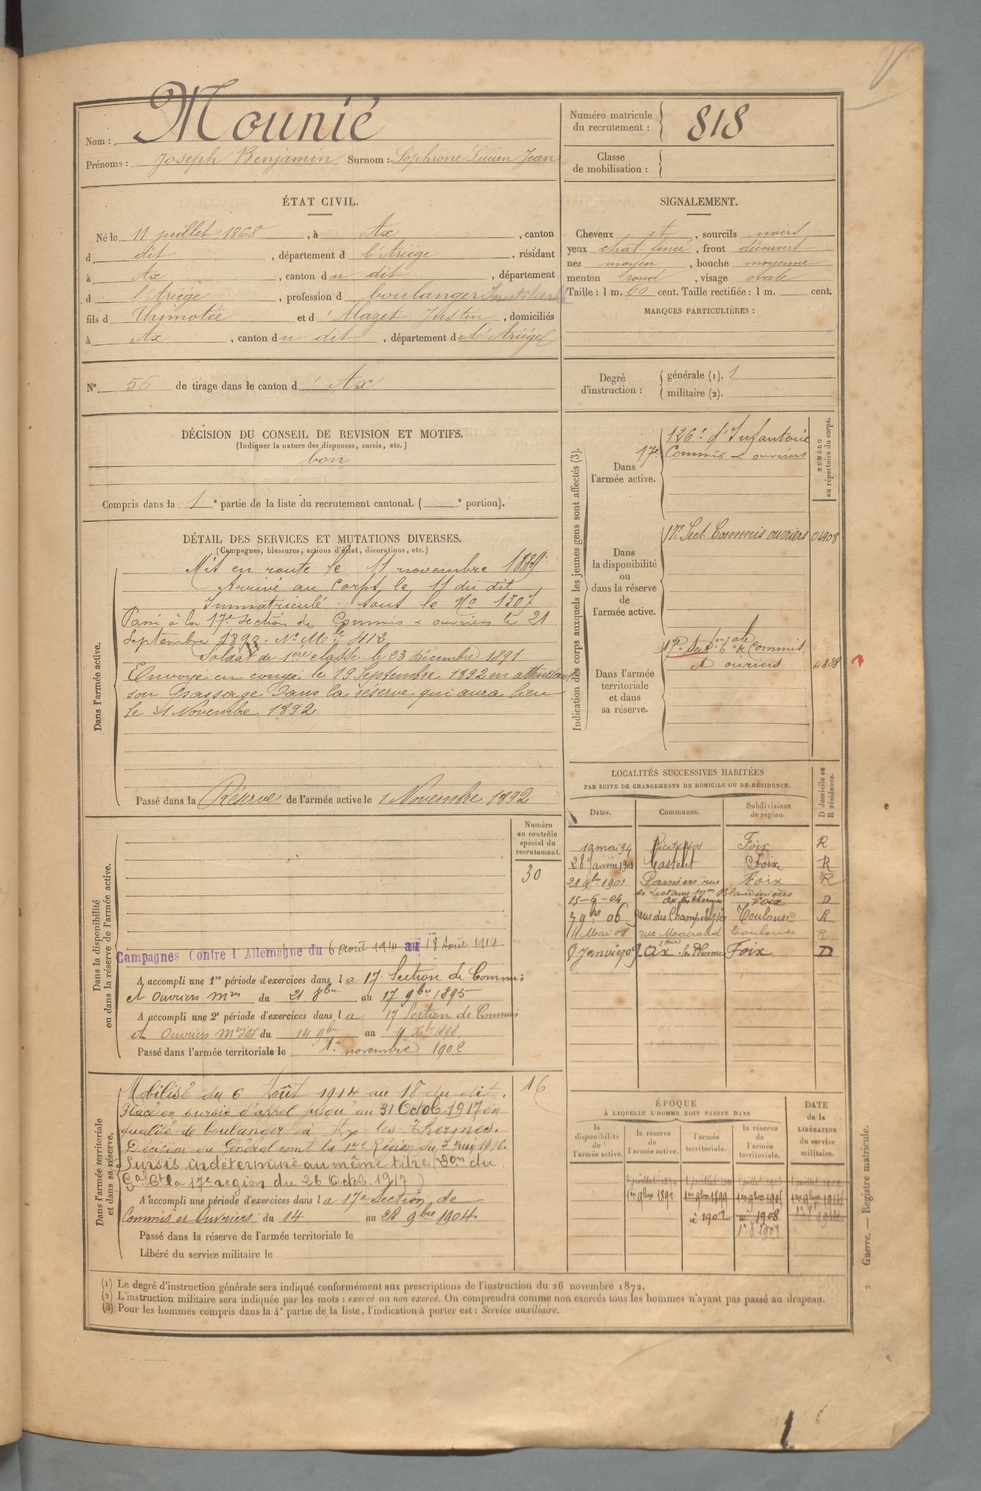 Nom : Mounié
Prénoms : Joseph Benjamin Surnom : Sophrone Lucien Jean
Numéro matricule du recrutement : 818
Classe de mobilisation :
ÉTAT CIVIL.
Né le 11 juillet 1868, à Ax, canton
d dit, département d l'Ariège, résidant
à Ax, canton du dit, département
d l'Ariège, profession d boulanger
fils d Thimotée et d' Alazet Justin, domiciliés
à Ax, canton du dit, département d l'Ariège
N° 56 de tirage dans le canton d' Ax
SIGNALEMENT.
Cheveux et, sourcils noirs
yeux chat. foncé, front découvert
nez moyen, bouche moyenne
menton rond, visage ovale
Taille : 1 m. 60 cent. Taille rectifiée : 1 m. cent.
MARQUES PARTICULIÈRES :
Degré d'instruction : générale (1). 1
militaire (2).
DÉCISION DU CONSEIL DE REVISION ET MOTIFS.
(Indiquer la nature des dispenses, sursis, etc.)
bon
Compris dans la 1e partie de la liste du recrutement cantonal. ( e portion).
DÉTAIL DES SERVICES ET MUTATIONS DIVERSES.
(Campagnes, blessures, actions d'éclat, décorations, etc.)
Dans l'armée active.
Mis en route le 11 novembre 1889
Arrivé au Corps le 11 du dit
Immatriculé sous le No 1307
Passé à la 17e section de Commis & ouvriers le 21
Septembre 1892. No Mle 412
Soldat de 1ère classe le 23 Décembre 1891
Envoyé en congé le 19 Septembre 1892 en attendant
son passage dans la réserve qui aura lieu
le 1 Novembre 1892
Passé dans la Réserve de l'armée active le 1 Novembre 1892
Indication des corps auxquels les jeunes gens sont affectés (3).
NUMÉRO au répertoire du corps.
Dans l'armée active.
126e d'Infanterie
17e Commis & ouvriers
Dans la disponibilité ou dans la réserve de l'armée active.
17e Sect. Commis ouvriers
Dans l'armée territoriale et dans sa réserve.
de Commis
& ouvriers
LOCALITÉS SUCCESSIVES HABITÉES
PAR SUITE DE CHANGEMENTS DE DOMICILE OU DE RÉSIDENCE.
Dates. Communes. Subdivisions de région. D domicile ou R résidence.
19 mai 94 Foix R
28 janvier 1901 Castelet Foix R
28 9bre 1901 Pamiers rue Foix R
15-9-04 Ax les Thermes Foix D
7 9bre 06 rue des Champs Toulouse R
11 Mai 08 rue Toulouse R
8 Janvier 09 Ax les Thermes Foix D
Dans la disponibilité ou dans la réserve de l'armée active.
Numéro au contrôle spécial du recrutement.
30
Campagnes Contre l'Allemagne du 6 Août 1914 au 18 Août 1914
A accompli une 1re période d'exercices dans la 17e Section de Commis
et Ouvriers Mres du 21 8bre au 17 9bre 1895
A accompli une 2e période d'exercices dans la 17 Section de Commis
et Ouvriers du 14 9bre au 11 Xbre 1898
Passé dans l'armée territoriale le 1er novembre 1902
Dans l'armée territoriale et dans sa réserve.
16
Mobilisé du 6 Août 1914 au 18 du dit.
Placé en sursis d'appel jusqu'au 31 Octob. 1917 en
qualité de boulanger à Ax les Thermes.
Décision du Général comt la 17e Région du 1916.
Sursis indéterminé au même titre (Don du
Gal Ct la 17e région du 26 Octob. 1917)
A accompli une période d'exercices dans la 17e Section de
Commis et Ouvriers du 14 au 28 9bre 1904.
Passé dans la réserve de l'armée territoriale le
Libéré du service militaire le
ÉPOQUE
À LAQUELLE L'HOMME DOIT PASSER DANS
la disponibilité de l'armée active. la réserve de l'armée active. l'armée territoriale. la réserve de l'armée territoriale.
DATE de la LIBÉRATION du service militaire.
1er 9bre 1892 1er 9bre 1899
à 1902 à 1908
(1) Le degré d'instruction générale sera indiqué conformément aux prescriptions de l'instruction du 26 novembre 1872.
(2) L'instruction militaire sera indiquée par les mots : exercé ou non exercé. On comprendra comme non exercés tous les hommes n'ayant pas passé au drapeau.
(3) Pour les hommes compris dans la 4e partie de la liste, l'indication à porter est : Service auxiliaire.
Guerre. — Registre matricule.